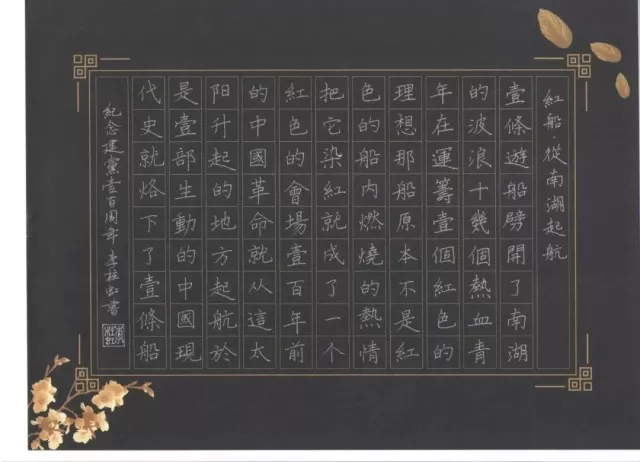 紅船從南湖起航
壹條遊船劈開了南湖
的波浪十幾個熱血青
年在運籌壹個紅色的
理想那船原本不是紅
色的船內燃燒的熱情
把它染紅就成了一个
紅色的會場壹百年前
的中國革命就从這太
陽升起的地方起航於
是壹部生動的中國現
代史就烙下了壹條船
紀念建黨壹百周年 李桂虹書